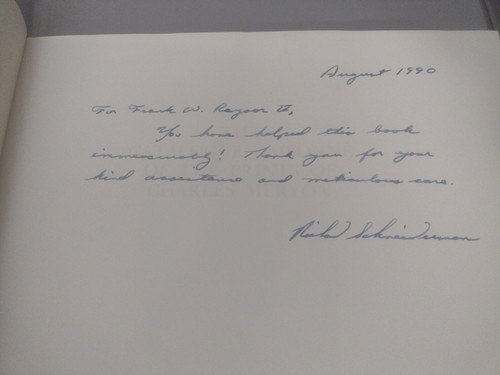 August 1990
For Frank W. Raysor II,
You have helped this book
immeasurably! Thank you for your
kind assistance and meticulous care.
Richard Schneiderman